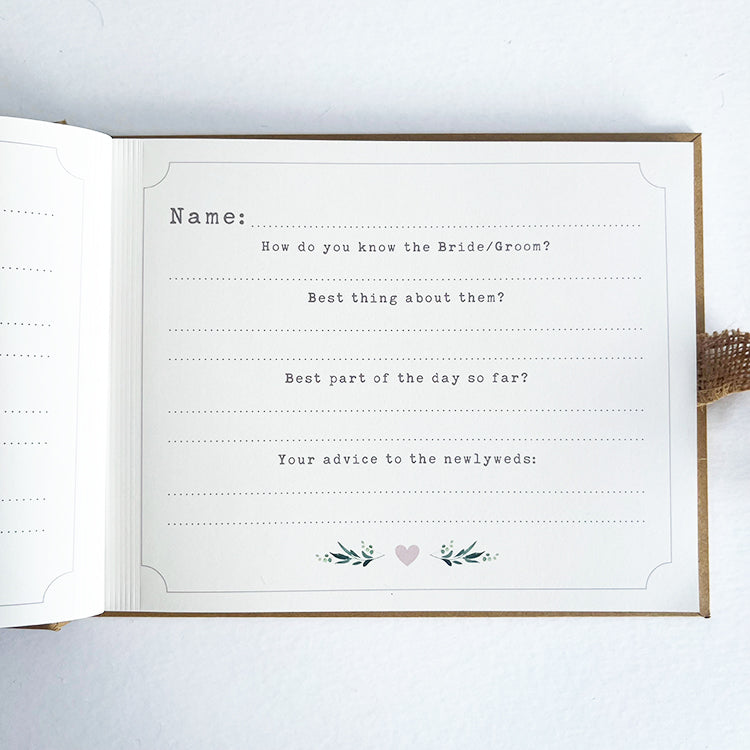 Name:
How do you know the Bride/Groom?
Best thing about them?
Best part of the day so far?
Your advice to the newlyweds: